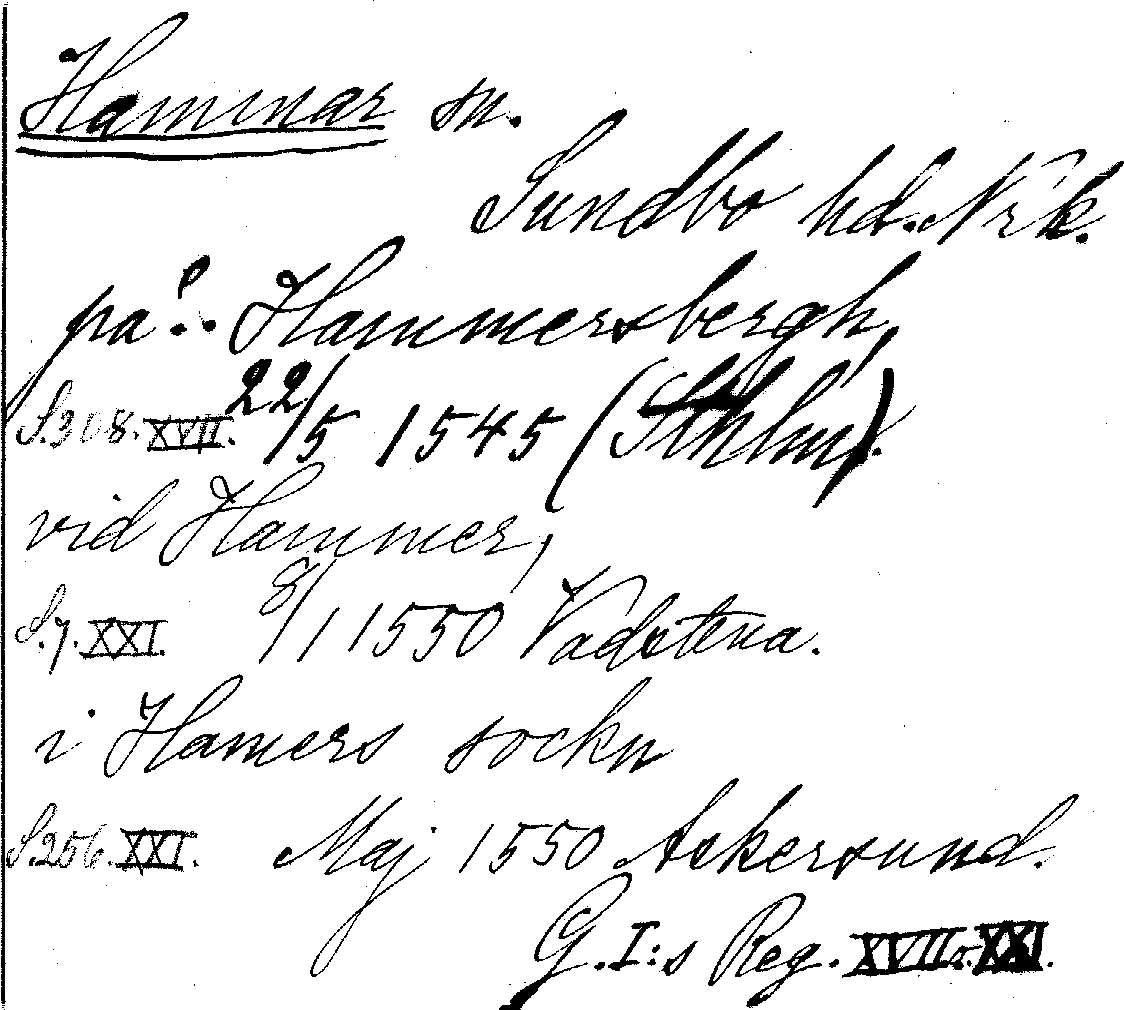 Hammar sn.
Sundbo hd. Nrk.
på.. Hammersbergh,
S. 308. XVII. 22/5 1545 (Sthlm).
vid Hammer,
S. 7. XXI. 8/1 1550 Vadstena.
i Hamers sockn
S. 256. XXI. Maj 1550 Askersund.
G. I:s Reg. XVII o. XXI.